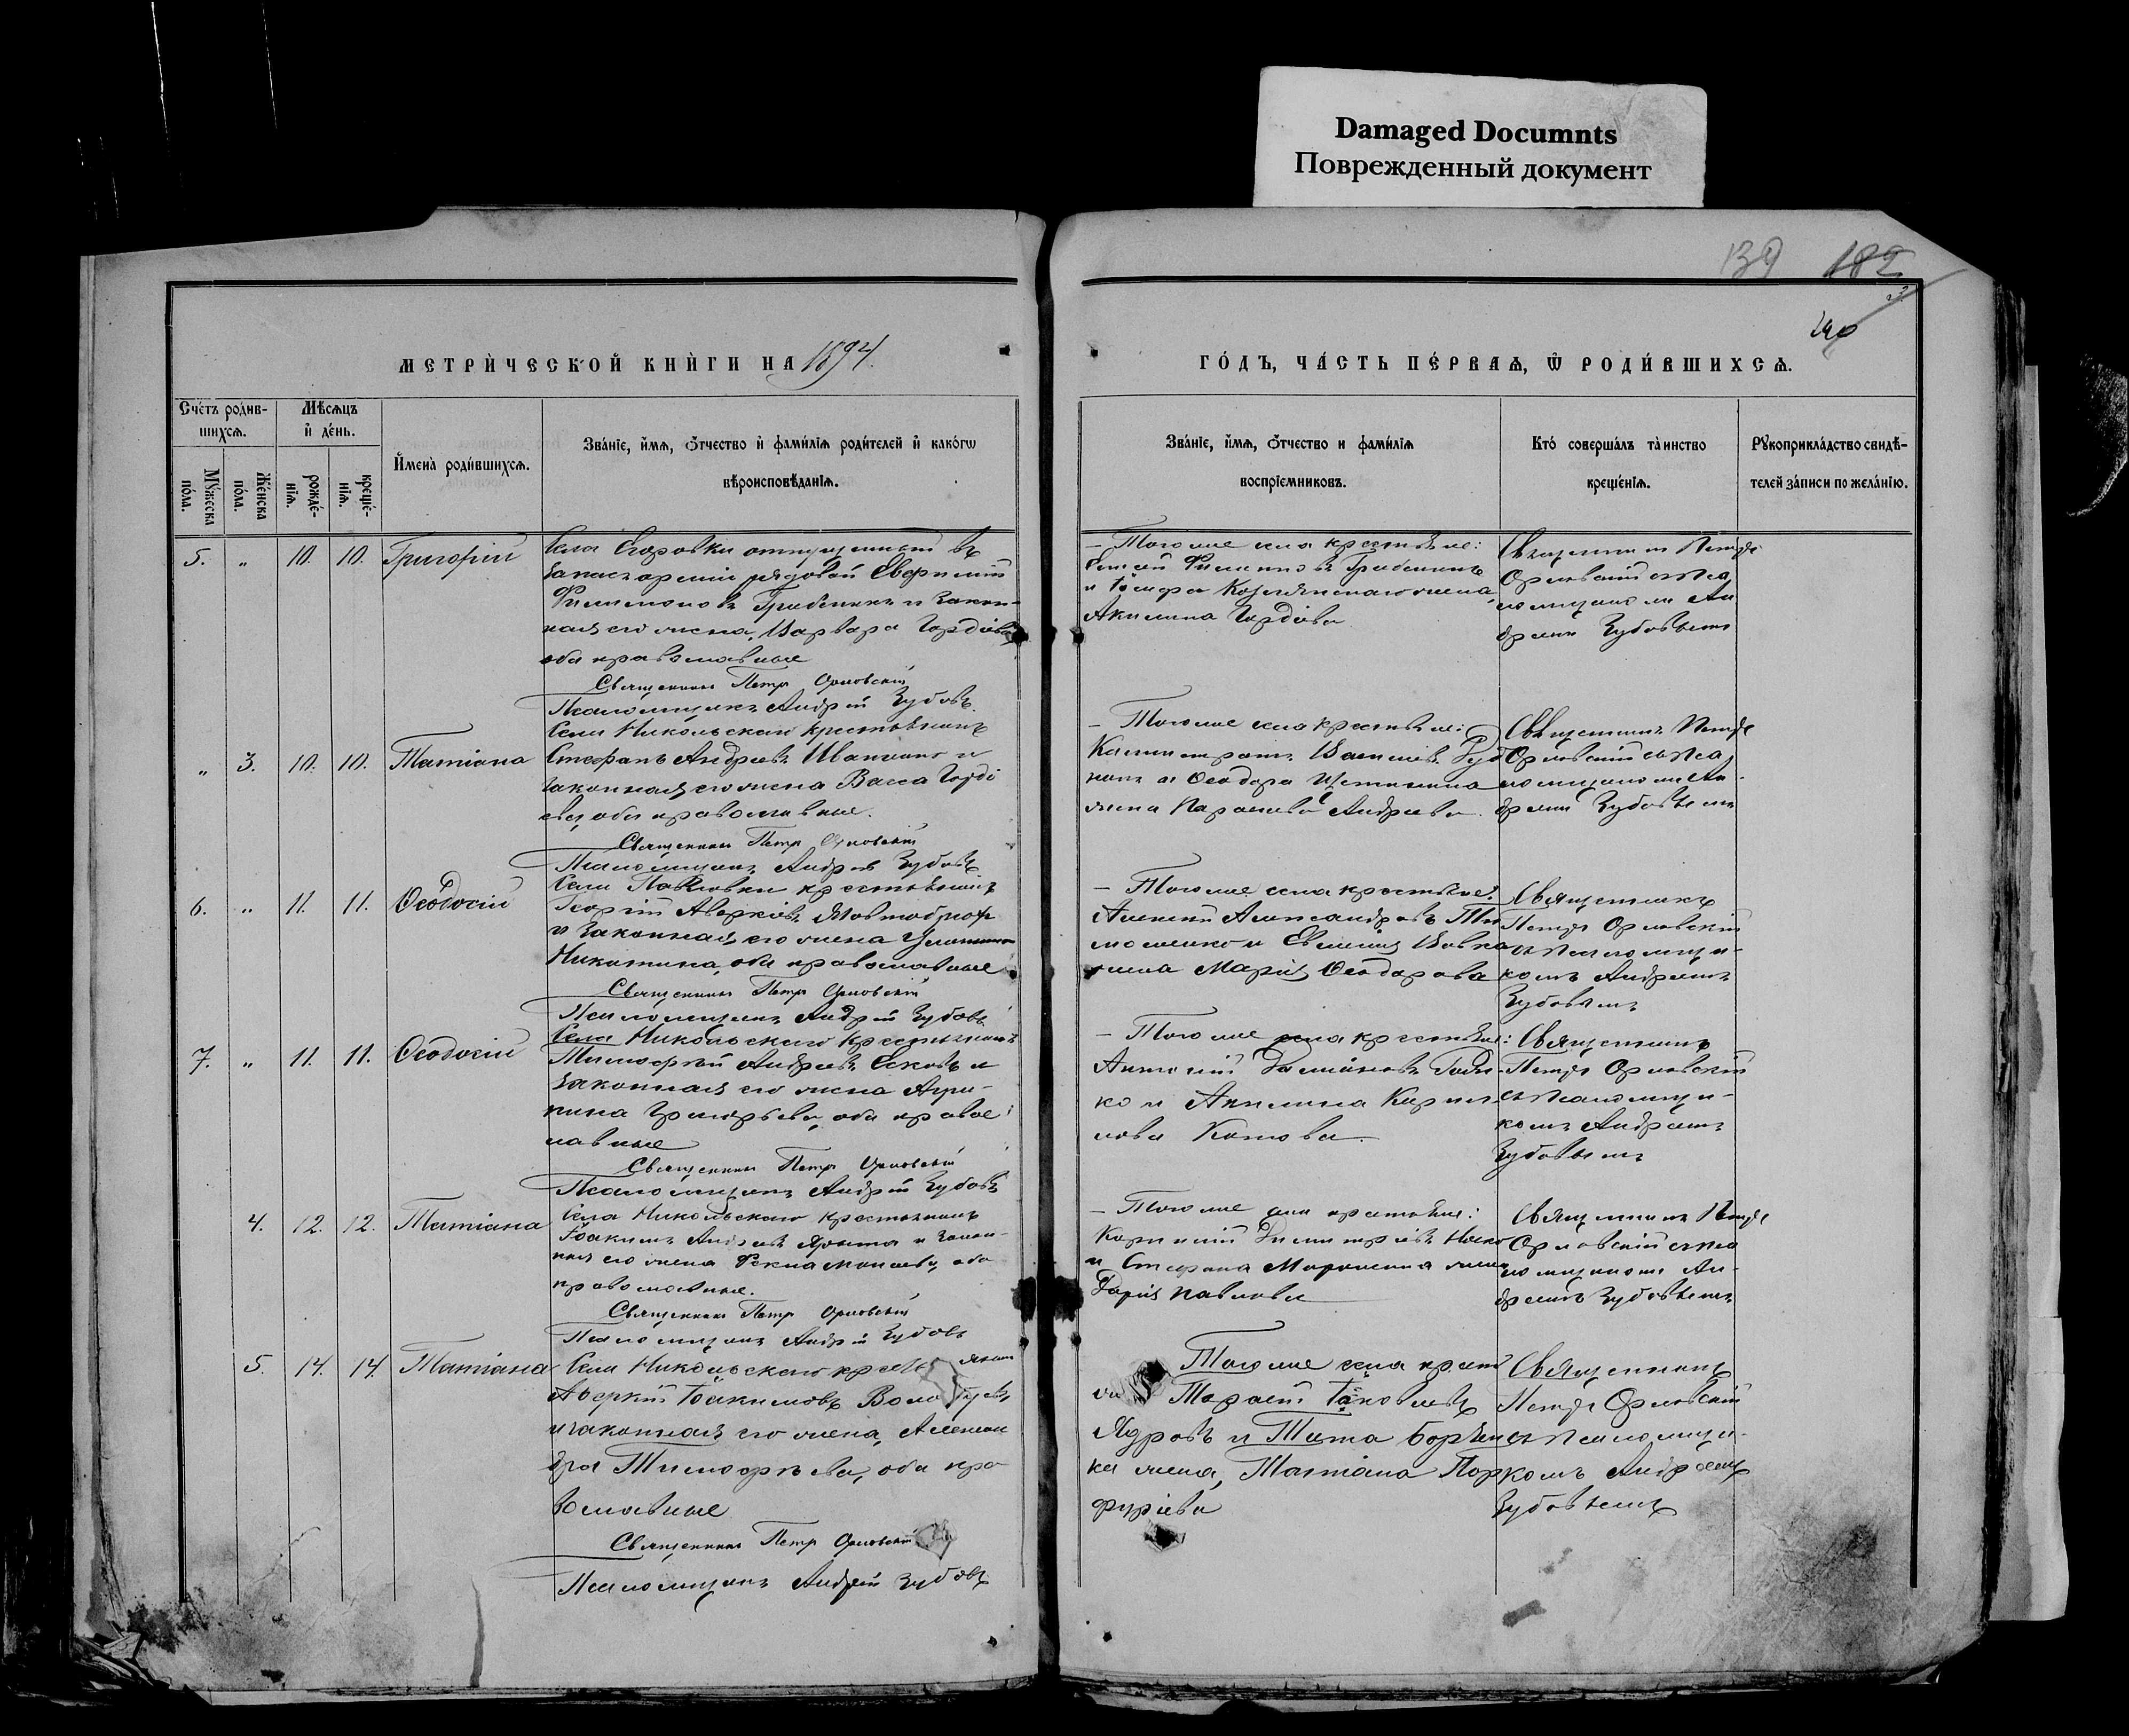 Damaged Documnts
Поврежденный документ
139 182
МЕТРИ́ЧЕСКОЙ КНИ́ГИ НА 1894.
ГО́ДЪ, ЧА́СТЬ ПЕ́РВАѦ, Ѿ РОДИ́ВШИХСѦ.
Сче́тъ роди́в-
шихсѧ.
Мѣ́сѧцъ
и҆ де́нь.
Му́жеска
по́ла.
Же́нска
по́ла.
рожде́-
нїѧ.
креще́-
нїѧ.
И҆мена̀ роди́вшихсѧ.
Зва́нїе, и҆́мѧ, ѻ҆́тчество и҆ фами́лїѧ роди́телей и҆ како́гѡ
вѣроисповѣ́данїѧ.
Зва́нїе, и҆́мѧ, ѻ҆́тчество и фами́лїѧ
воспрїе́мниковъ.
Кто́ соверша́лъ та̀инство
креще́нїѧ.
Рꙋкоприкла́дство свидѣ́-
телей за́писи по жела́нїю.
5. „ 10. 10. Григорій
Села Егоровки отпущенный въ
запас арміи рядовой Евфимій
Филимоновъ Грибеникъ и закон-
ная его жена, Варвара Гордіева
оба православные
Священникъ Петръ Орловскій
Псаломщикъ Андрей Зубовъ.
– Того же села крестьяне:
Филимоновъ Грибеникъ
жена,
Акилина Гордіева
Священникъ Петръ
Орловскій съ Пса
ломщикомъ Ан
дреемъ Зубовымъ
„ 3. 10. 10. Татіана
Села Никольскаго крестьянинъ
Стефанъ Андреевъ и
законная его жена Васса Горді
ева, оба православные.
Священникъ Петръ Орловскій
Псаломщикъ Андрей Зубовъ
– Того же села крестьяне:
Каллистратъ Василіевъ Руд
и Ѳеодора Щетинина
жена Параскева Андреева.
Священникъ Петръ
Орловскій съ Пса
ломщикомъ Ан-
дреемъ Зубовымъ
6. „ 11. 11. Ѳеодосій
Села Павловки крестьянинъ
Георгій Аверкіевъ
и законная его жена
Никитина, оба православные
Священникъ Петръ Орловскій
Псаломщикъ Андрей Зубовъ
– Того же села крестьяне:
Алексій Александровъ Ти
мошенко и Вовка
жена Марія Ѳеодорова
Священникъ
Петръ Орловскій
съ Псаломщи-
комъ Андреемъ
Зубовымъ
7. „ 11. 11. Ѳеодосій
Села Никольскаго крестьянинъ
Тимоѳей Андреевъ Есковъ и
законная его жена Агри-
пина Григорьева, оба правос
лавные
Священникъ Петръ Орловскій
Псаломщикъ Андрей Зубовъ
– Того же села крестьяне:
Антоній Даміановъ
ко и Акилина Кирил
лова Котова
Священникъ
Петръ Орловскій
съ Псаломщи-
комъ Андреемъ
Зубовымъ
4. 12. 12. Татіана
Села Никольскаго крестьянинъ
Іоакимъ и закон-
ная его жена Ѳекла оба
православные.
Священникъ Петръ Орловскій
Псаломщикъ Андрей Зубовъ
– Того же села крестьяне:
Корнилій Димитріевъ
и Стефана жена
Дарія Павлова
Священникъ Петръ
Орловскій съ Пса
ломщикомъ Ан-
дреемъ Зубовымъ
5. 14. 14. Татіана
Села Никольскаго
Аверкій Іоакимовъ
и законная его жена, Алексан
дра Тимоѳеева, оба пра
вославные
Священникъ Петръ Орловскій
Псаломщикъ Андрей Зубовъ
Того же села крест
Тарасій Іаковлевъ
Ядровъ и Тита
ка жена, Татіана Пор
фуріева
Священникъ
Петръ Орловскій
съ Псаломщи-
комъ Андреемъ
Зубовымъ